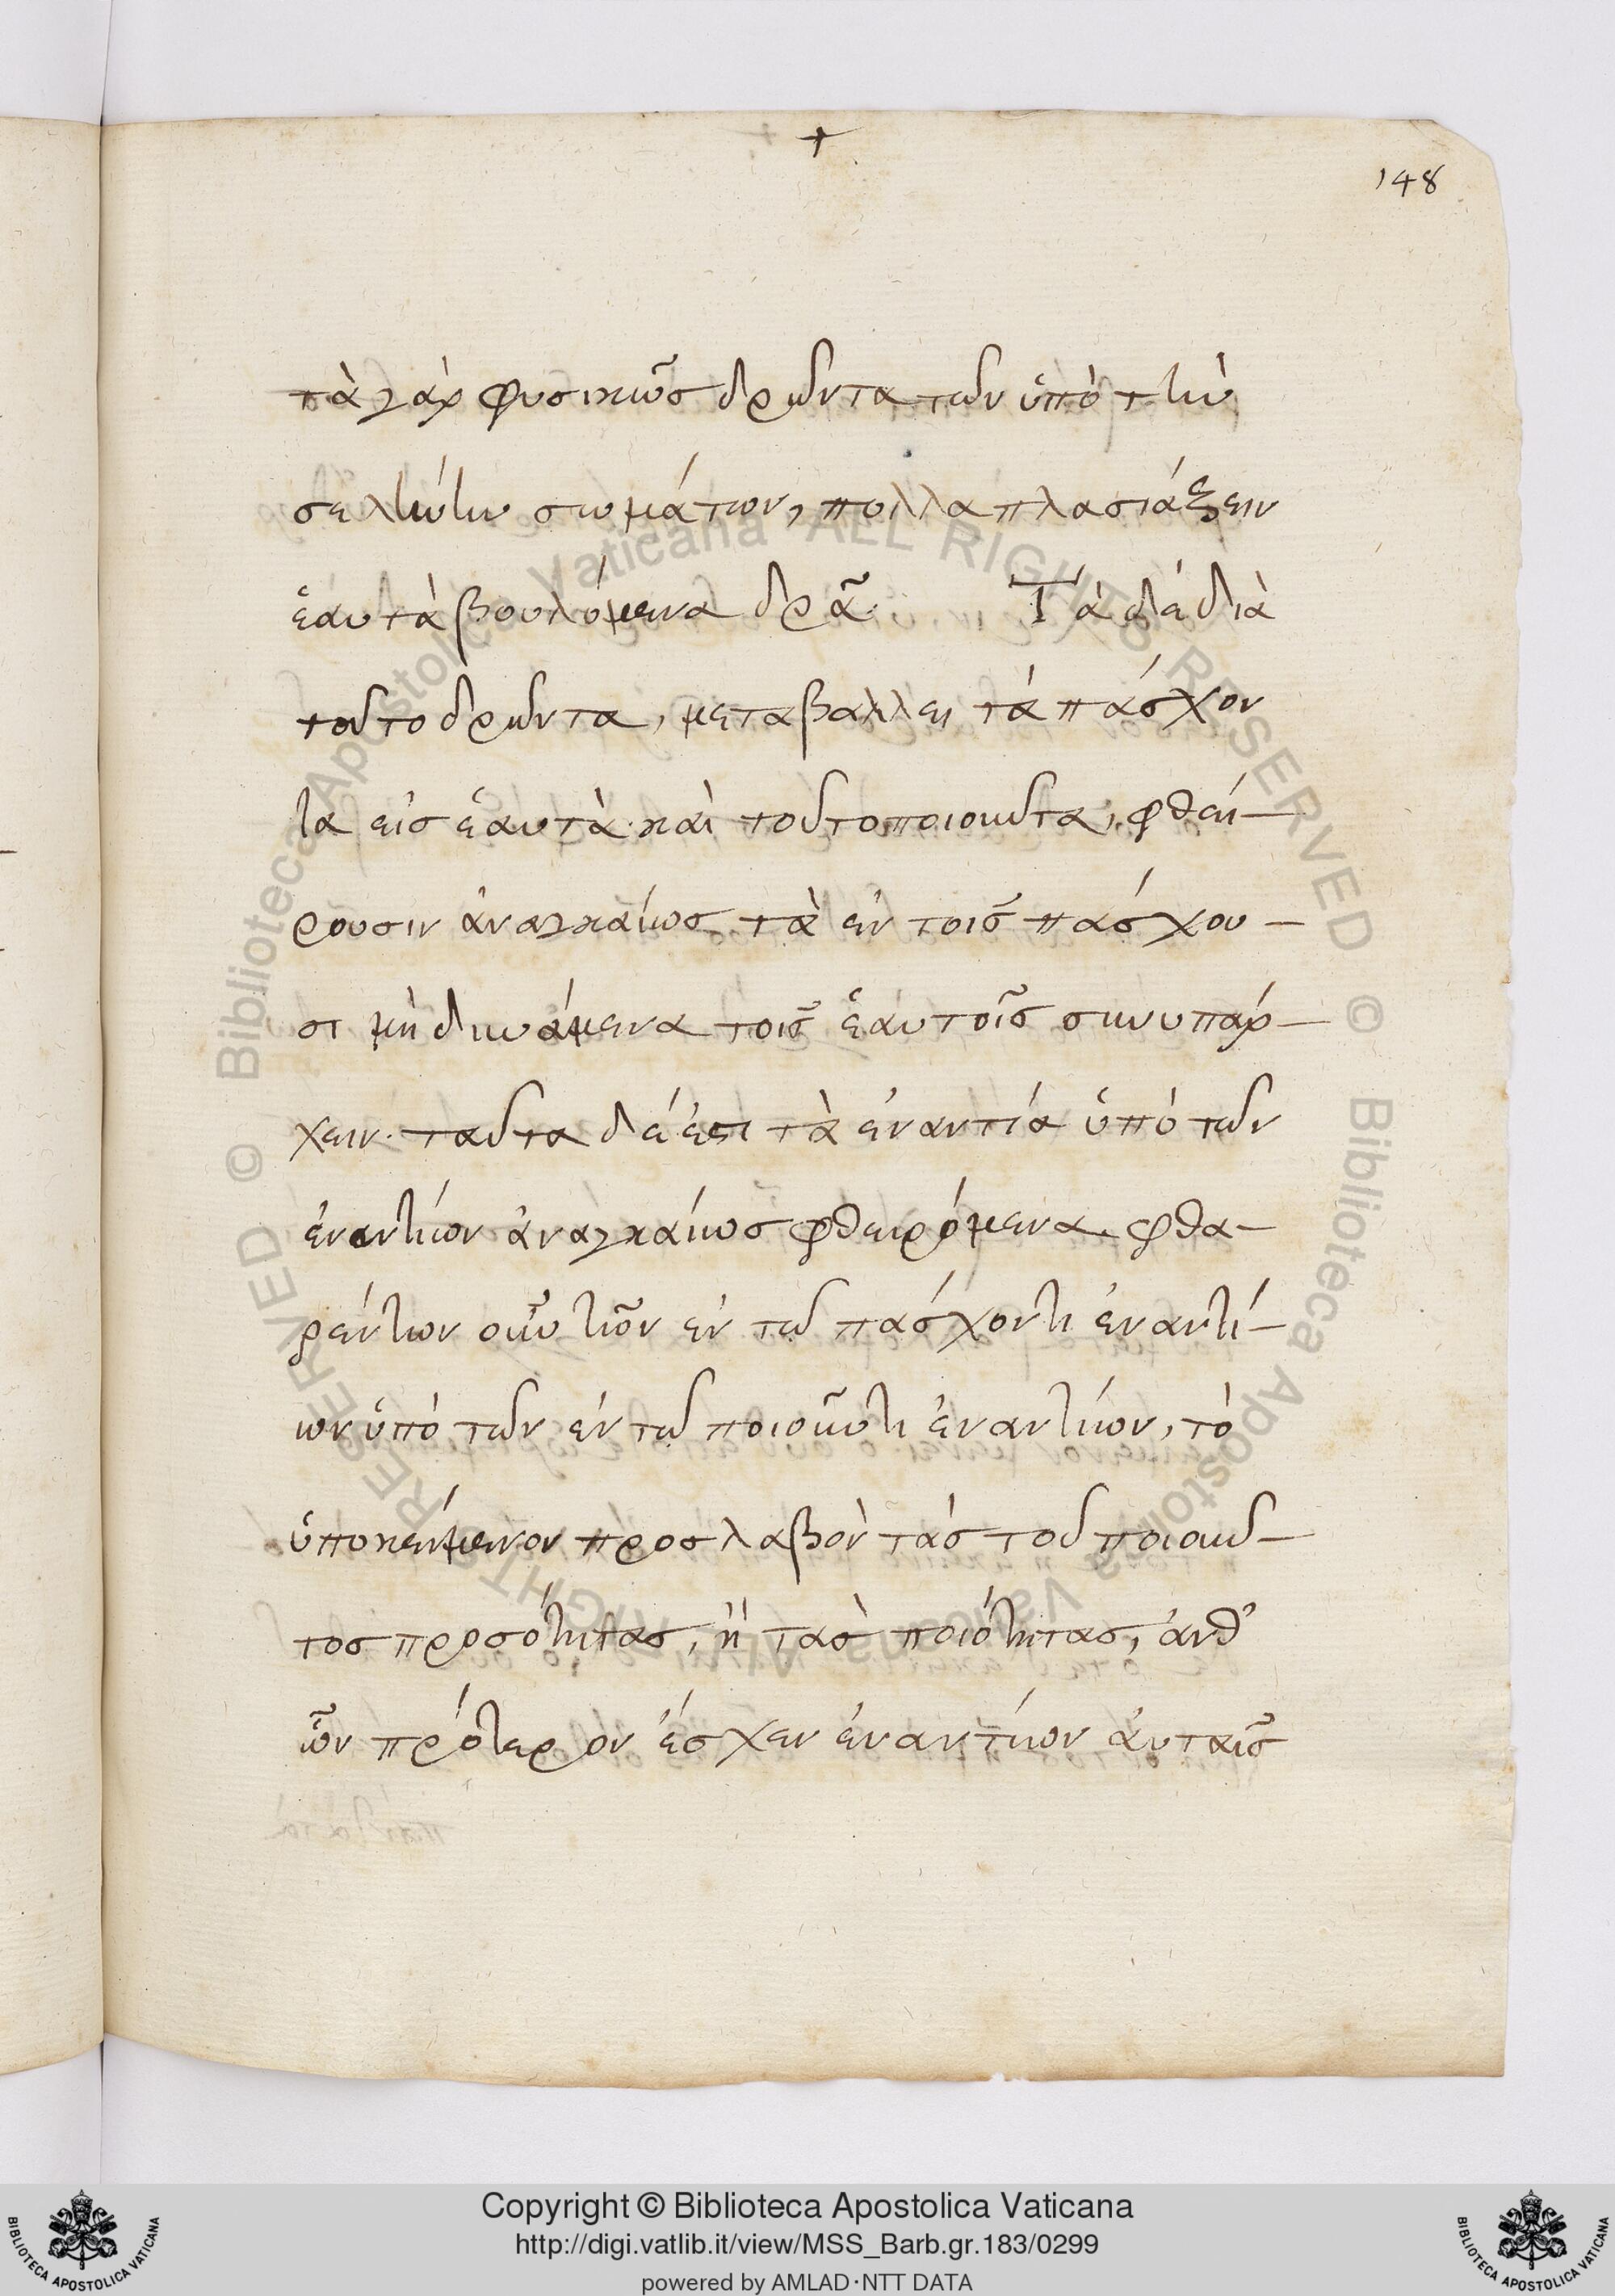 +
148
τὰ γὰρ φυσικῶς δρῶντα τῶν ὑπὸ τὴν
σελήνην σωμάτων, πολλαπλασιάζειν
ἑαυτὰ βουλόμενα δρᾶ. Τὰ δὲ διὰ
τοῦτο δρῶντα, μεταβαλλει τὰ πάσχον
τα εἰσ ἑαυτὰ· καὶ τοῦτο ποιοῦντα, φθεί-
ρουσιν ἀναγκαίως τὰ ἐν τοῖς πάσχου-
σι μὴ δυνάμενα τοῖς ἑαυτοῖς συνυπάρ-
χειν· ταῦτα δέ ἐστι τὰ ἐναντία ὑπὸ τῶν
ἐναντίων ἀναγκαίως φθειρόμενα. φθα-
ρέντων οὖν τῶν ἐν τῶ πάσχοντι ἐναντί-
ων ὑπὸ τῶν ἐν τῶ ποιοῦντι ἐναντίων, τὸ
ὑποκείμενον προσλαβὸν τάς τοῦ ποιοῦν-
τος προσότητας, ἢ τὰς ποιότητας, ἀνθ'
ὧν πρότερον ἔσχεν ἐναντίων ἀυταῖς
Copyright © Biblioteca Apostolica Vaticana
http://digi.vatlib.it/view/MSS_Barb.gr.183/0299
powered by AMLAD·NTT DATA
BIBLIOTECA APOSTOLICA VATICANA
BIBLIOTECA APOSTOLICA VATICANA
© Biblioteca Apostolica Vaticana ALL RIGHTS RESERVED
© Biblioteca Apostolica Vaticana ALL RIGHTS RESERVED